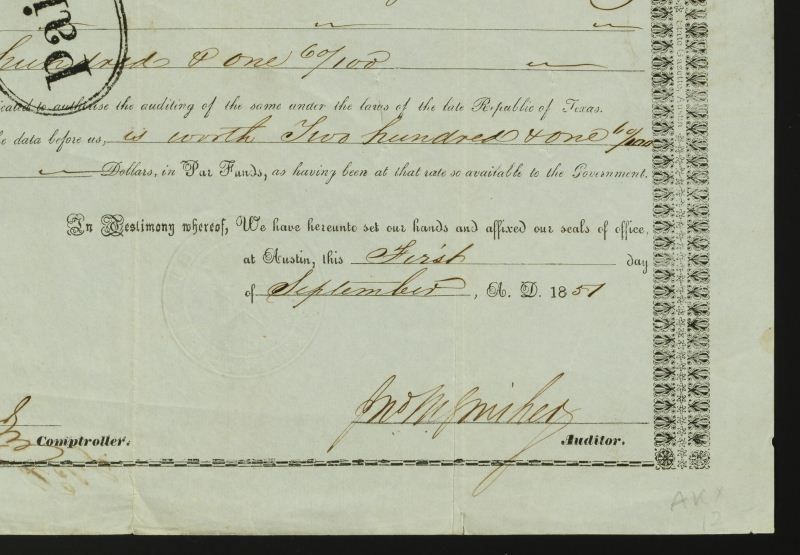 paid
hundred & One 60/100
to authorise the auditing of the same under the laws of the late Republic of Texas.
data before us, is worth Two hundred & One 60/100
Dollars, in Par Funds, as having been at that rate so available to the Government.
In Testimony whereof, We have hereunto set our hands and affixed our seals of office,
at Austin, this First day
of September, A. D. 1851
Comptroller.
Auditor.